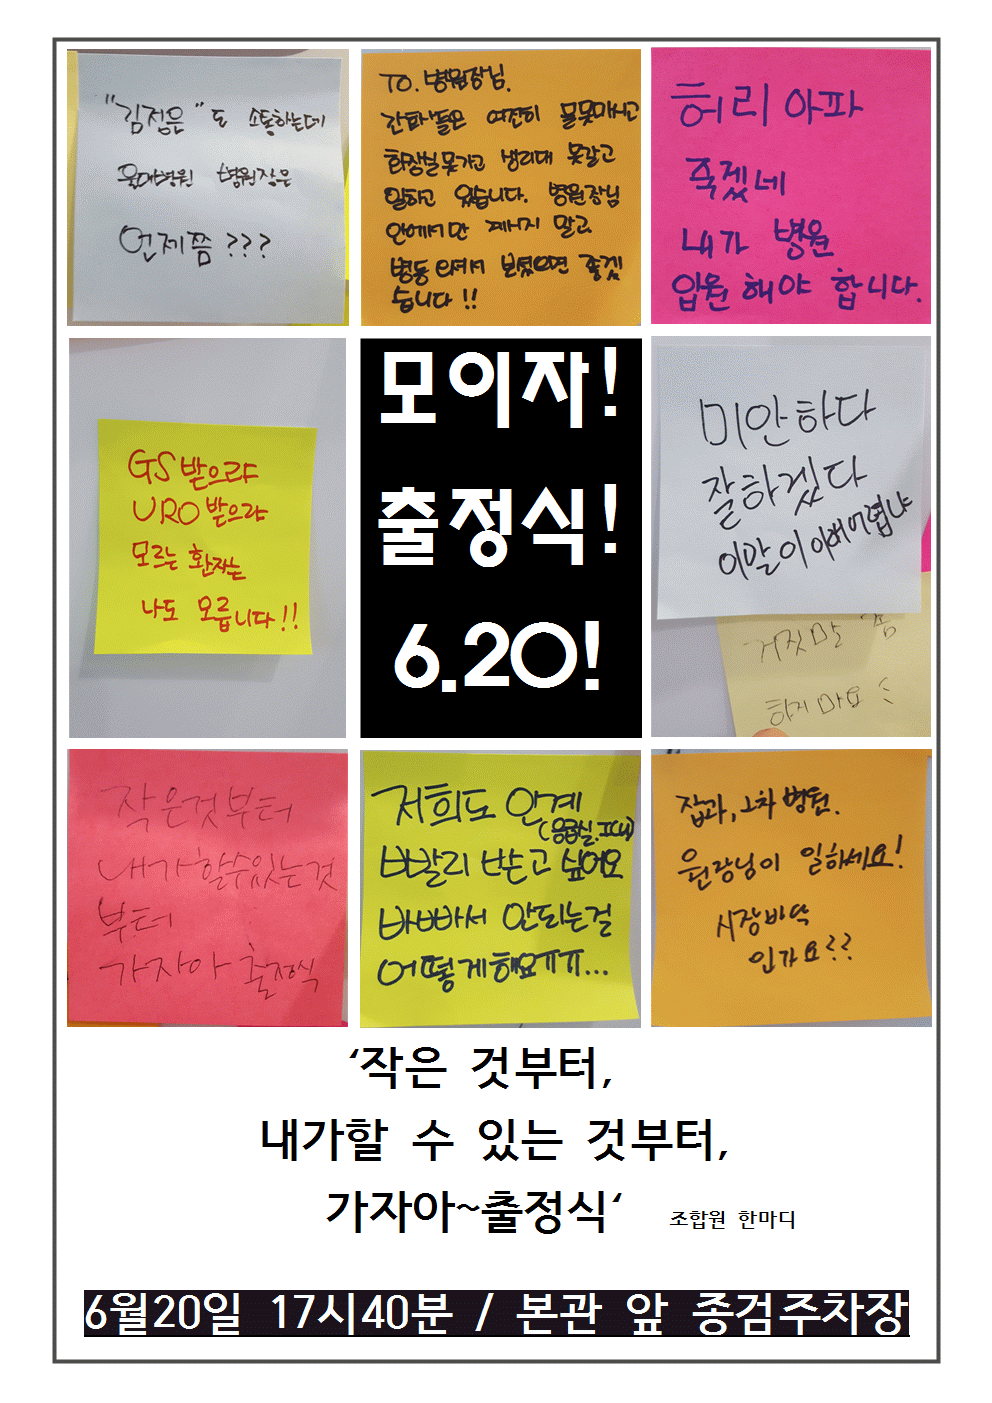 "김정은"도 소통하는데
울대병원 병원장은
언제쯤???
TO. 병원장님.
간호사들은 여전히 물못마시고
화장실못가고 생리대 못갈고
일하고 있습니다. 병원장님
안에서만 계시지 말고
병동 오셔서 보셨으면 좋겠
습니다!!
허리 아파
죽겠네
내가 병원
입원 해야 합니다.
GS 받으랴
URO 받으랴
모르는 환자는
나도 모릅니다!!
모이자!
출정식!
6.20!
미안하다
잘하겠다
이말이 이래 어렵냐
거짓말 좀
하지마요
작은것부터
내가 할수있는것
부터
가자아 출정식
저희도 인계
(응급실.ICU)
빨리 받고 싶어요
바빠서 안되는걸
어떻게해요ㅠㅠ...
잡과, 2차 병원.
원장님이 일하세요!
시장바닥
인가요??
‘작은 것부터,
내가할 수 있는 것부터,
가자아~출정식‘ 조합원 한마디
6월20일 17시40분 / 본관 앞 종검주차장